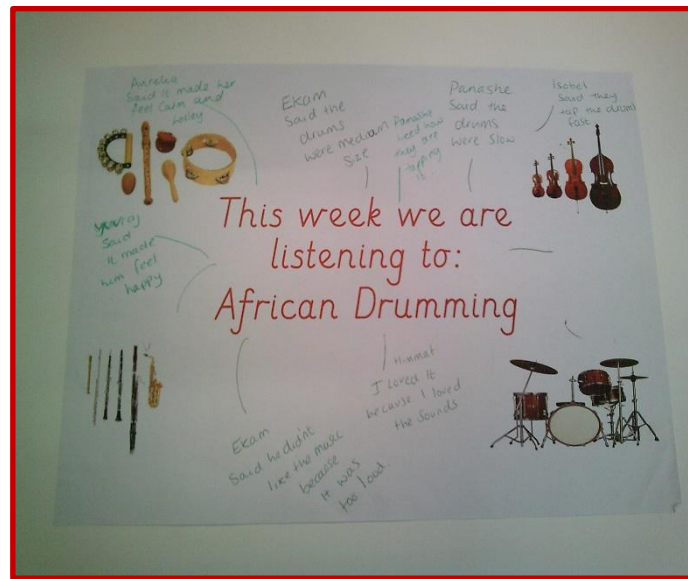 Aurelia
Said it made her
feel calm and
Ekam
Said the
drums
were medium
size
Panashe
how
they are
tapping
it
Panashe
Said the
drums
were slow
Isobel
Said they
tap the drums
fast
This week we are
listening to:
African Drumming
Yuvraj
Said
it made
him feel
happy
Himmat
I loved it
because I loved
the sounds
Ekam
Said he didn't
like the music
because
it was
too loud